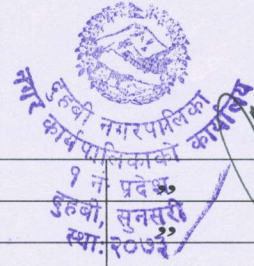 दुहवी नगरपालिका
नगर कार्यपालिकाको कार्यालय
१ नं प्रदेश
दुहवी, सुनसरी
स्था: २०७३
”
”